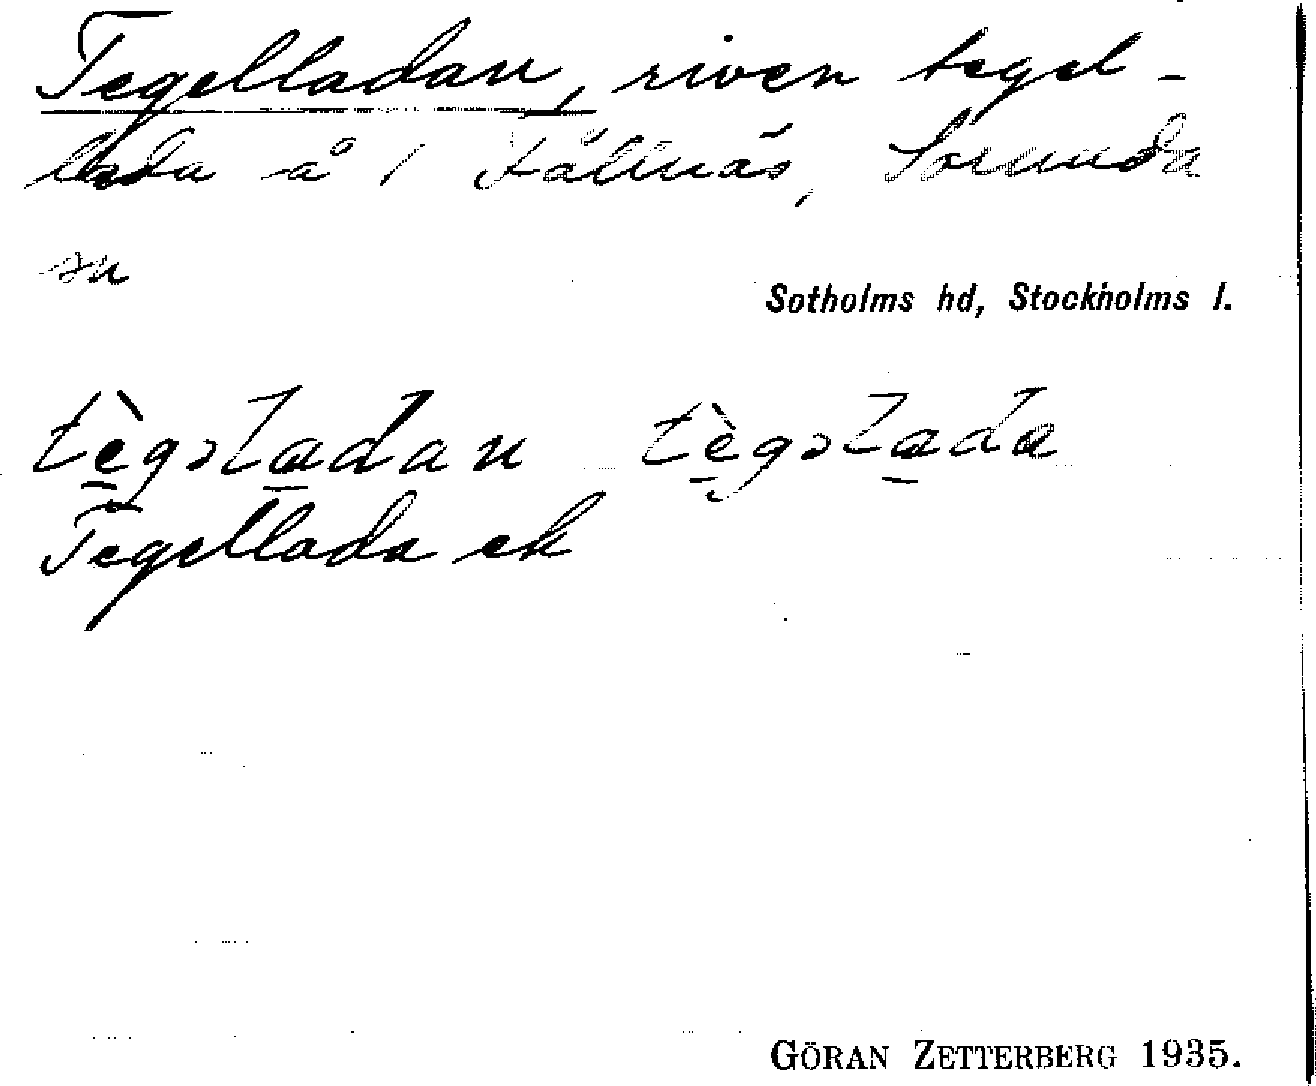 Tegelladan, riven tegel-
lada å 1 Fållnäs, Sorunda
sn
Sotholms hd, Stockholms l.
tè̱gəla̱dan tè̱gəla̱da
Tegellada ek
GÖRAN ZETTERBERG 1935.